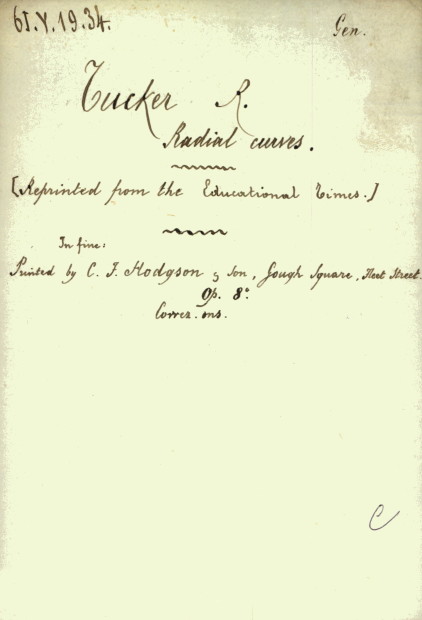 61.V.19.34.
Gen.
Tucker R.
Radial curves.
[Reprinted from the Educational Times.]
In fine:
Printed by C. F. Hodgson & Son, Gough Square, Fleet Street.
Op. 8°
Correz. ms.
C